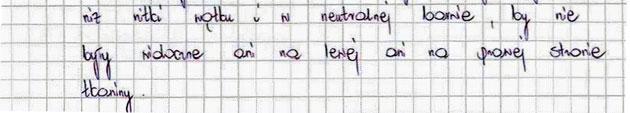 niż nitki wątku i w neutralnej barwie, by nie
były widoczne ani na lewej ani na prawej stronie
tkaniny.